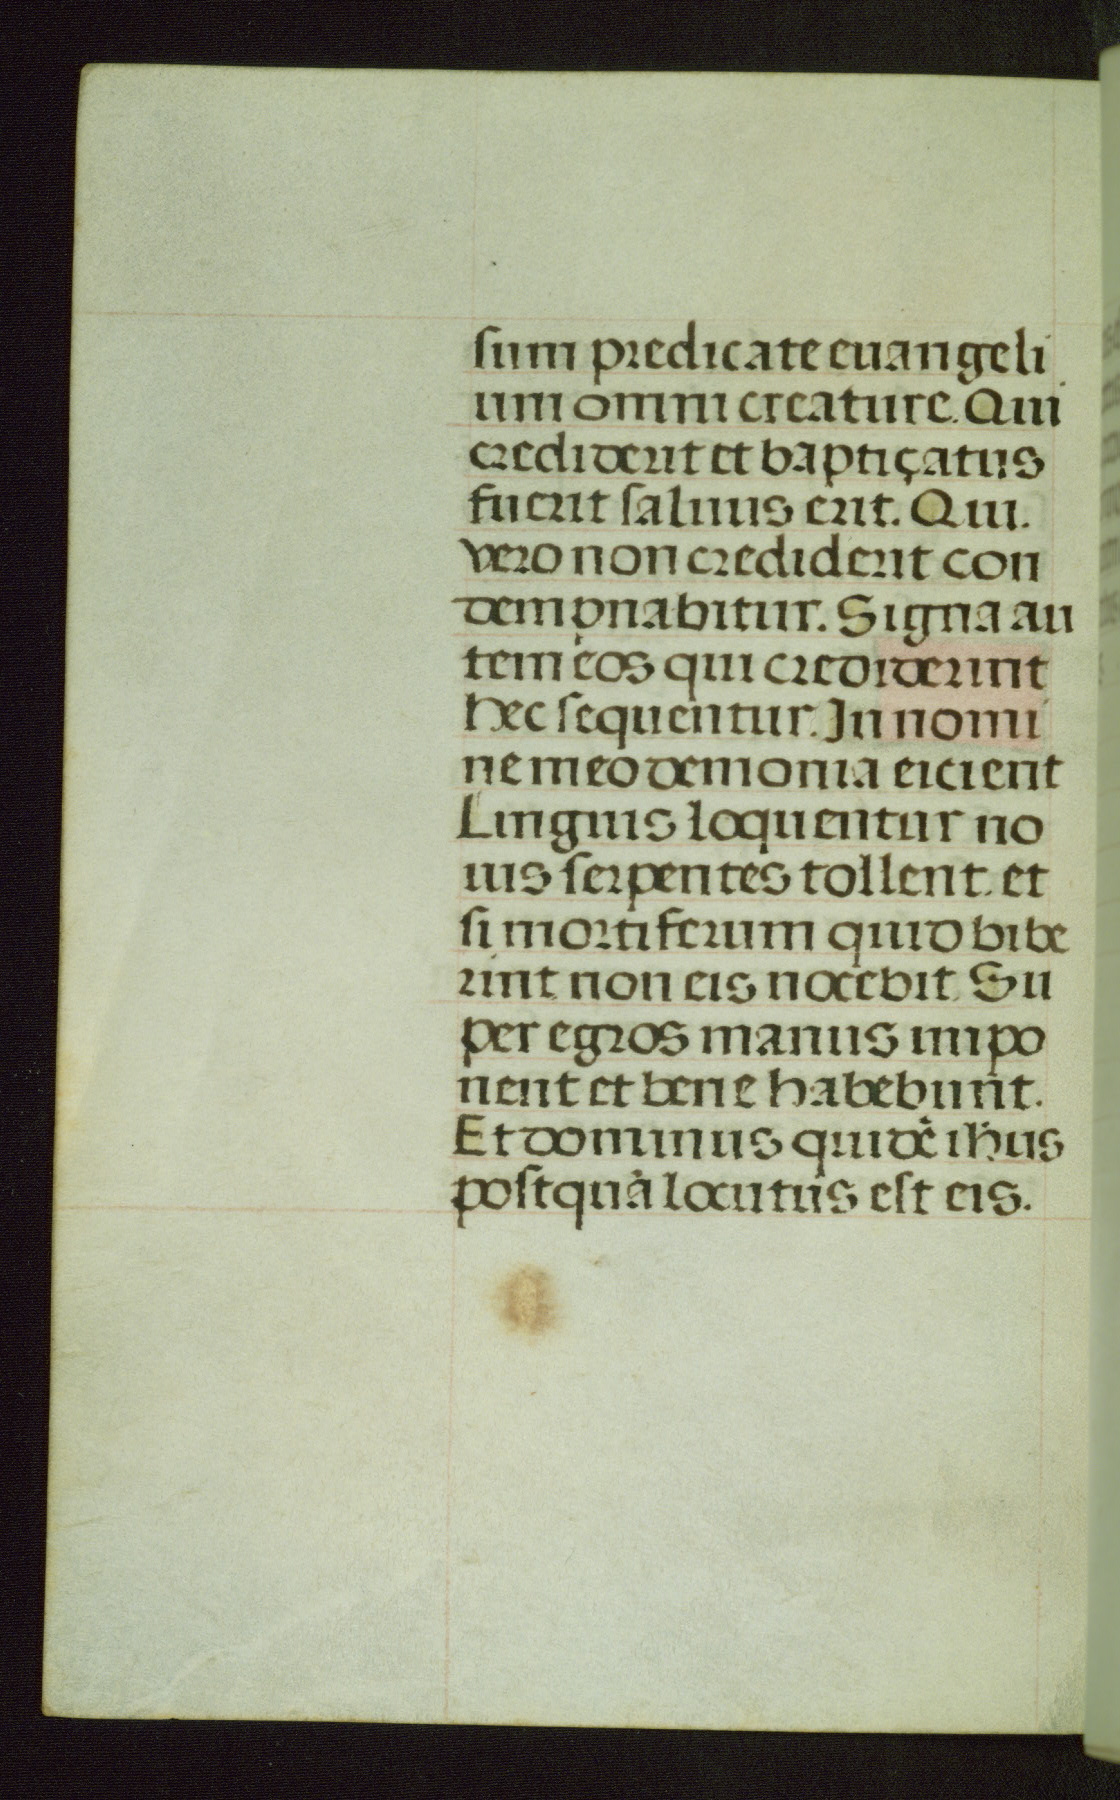 sum predicate euangeli
um omni creature. Qui
crediderit et baptiçatus
fuerit saluus erit. Qui.
vero non crediderit con
dempnabitur. Signa au
tem eos qui crediderint
hec sequentur. In nomi
ne meo demonia eicient
Linguis loquentur no
uis serpentes tollent. et
si mortiferum quid bibe
rint non eis nocebit. Su
per egros manus impo
nent et bene habebunt.
Et dominus quidē ihus
postquā locutus est eis.